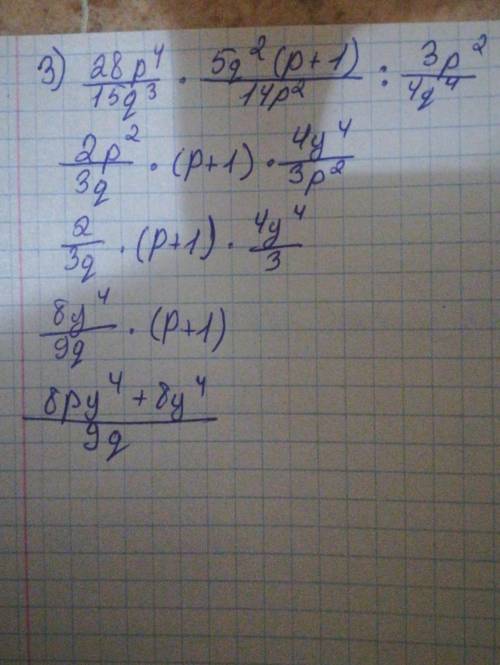 3) 28p⁴/15q³ · 5q²(p+1)/14p² : 3p²/4q⁴
2p²/3q · (p+1) · 4y⁴/3p²
2/3q · (p+1) · 4y⁴/3
8y⁴/9q · (p+1)
8py⁴+8y⁴/9q